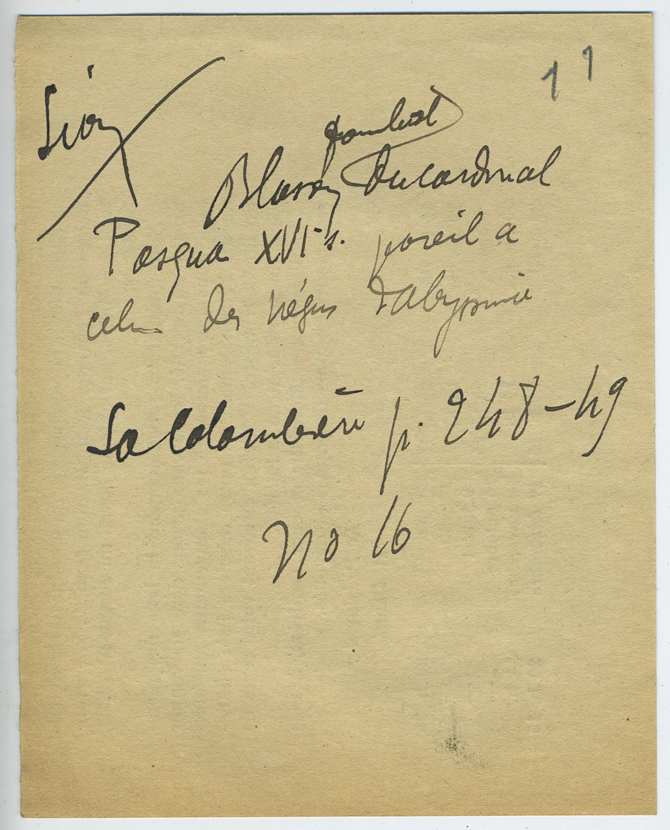 11
Lion
Blason du cardinal
Pasqua XVIe s. pareil a
celui des négus d'abyssinie
La Colombière p. 248-49
No 16